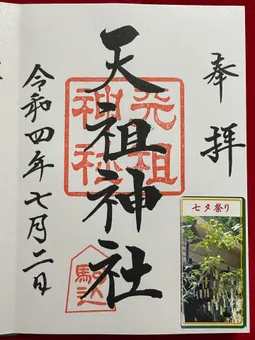 奉拝
天祖神社
元祖
神社
駒込
令和四年七月二日
七夕祭り